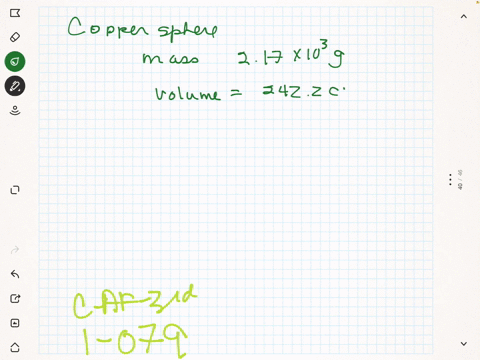 Copper sphere
mass 2.17 × 10³ g
volume = 242.2 c
1-079